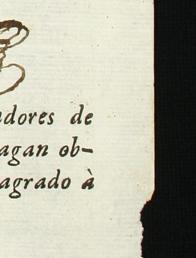 adores de
agan ob-
agrado à